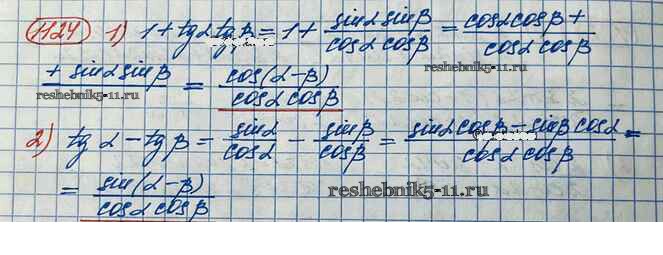 1124 1) 1 + tgα tgβ = 1 + sinα sinβ / cosα cosβ = cosα cosβ + / cosα cosβ
+ sinα sinβ / = cos(α-β) / cosα cosβ
reshebnik5-11.ru
reshebnik5-11.ru
2) tgα - tgβ = sinα / cosα - sinβ / cosβ = sinα cosβ - sinβ cosα / cosα cosβ =
= sin(α-β) / cosα cosβ
reshebnik5-11.ru